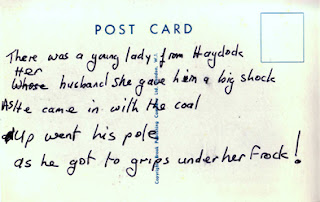 POST CARD
There was a young lady from Haydock
Her
Whose husband she gave him a big shock
As He came in with the coal
Up went his pole
as he got to grips under her Frock!